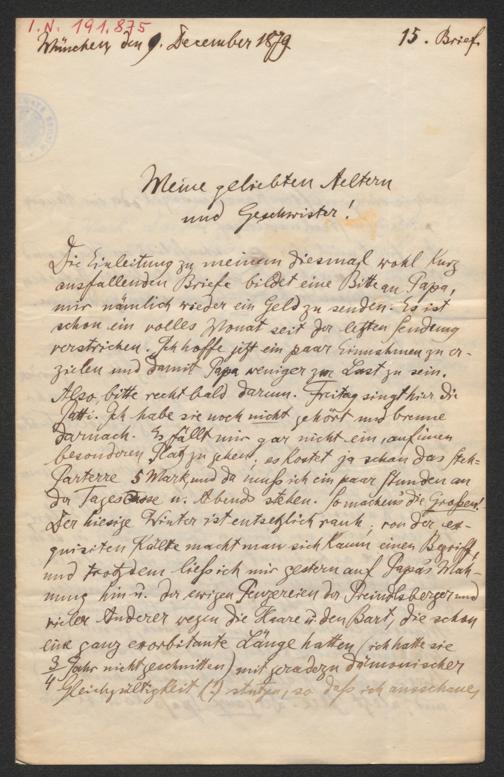 I.N. 191.875
München den 9. December 1879
15. Brief.
Meine geliebten Aeltern
und Geschwister!
Die Einleitung zu meinem diesmal wohl kurz
ausfallenden Briefe bildet eine Bitte an Papa,
mir nämlich wieder ein Geld zu senden. Es ist
schon ein volles Monat seit der letzten Sendung
verstrichen. Ich hoffe jetzt ein paar Einnahmen zu er-
zielen und damit Papa weniger zur Last zu sein.
Also, bitte recht bald darum. Freitag singt hier die
Patti. Ich habe sie noch nicht gehört und brenne
darnach. Es fällt mir gar nicht ein, auf einen
besonderen Platz zu gehen; es kostet ja schon das Steh-
Parterre 5 Mark und da muß ich ein paar Stunden an
der Tagescasse u. Abends stehen. So machen's die Großen!
Der hiesige Winter ist entsetzlich rauh; von der ex-
quisiten Kälte macht man sich kaum einen Begriff,
und trotzdem ließ ich mir gestern auf Papa's Mah-
nung hin u. der ewigen der Preindlsberger und
vieler Anderer wegen die Haare u. den Bart, die schon
eine ganz exorbitante Länge hatten (ich hatte sie
3/4 Jahr nicht geschnitten) mit geradezu dämonischer
Gleichgültigkeit (!) stutzen, so daß ich ausschaue,